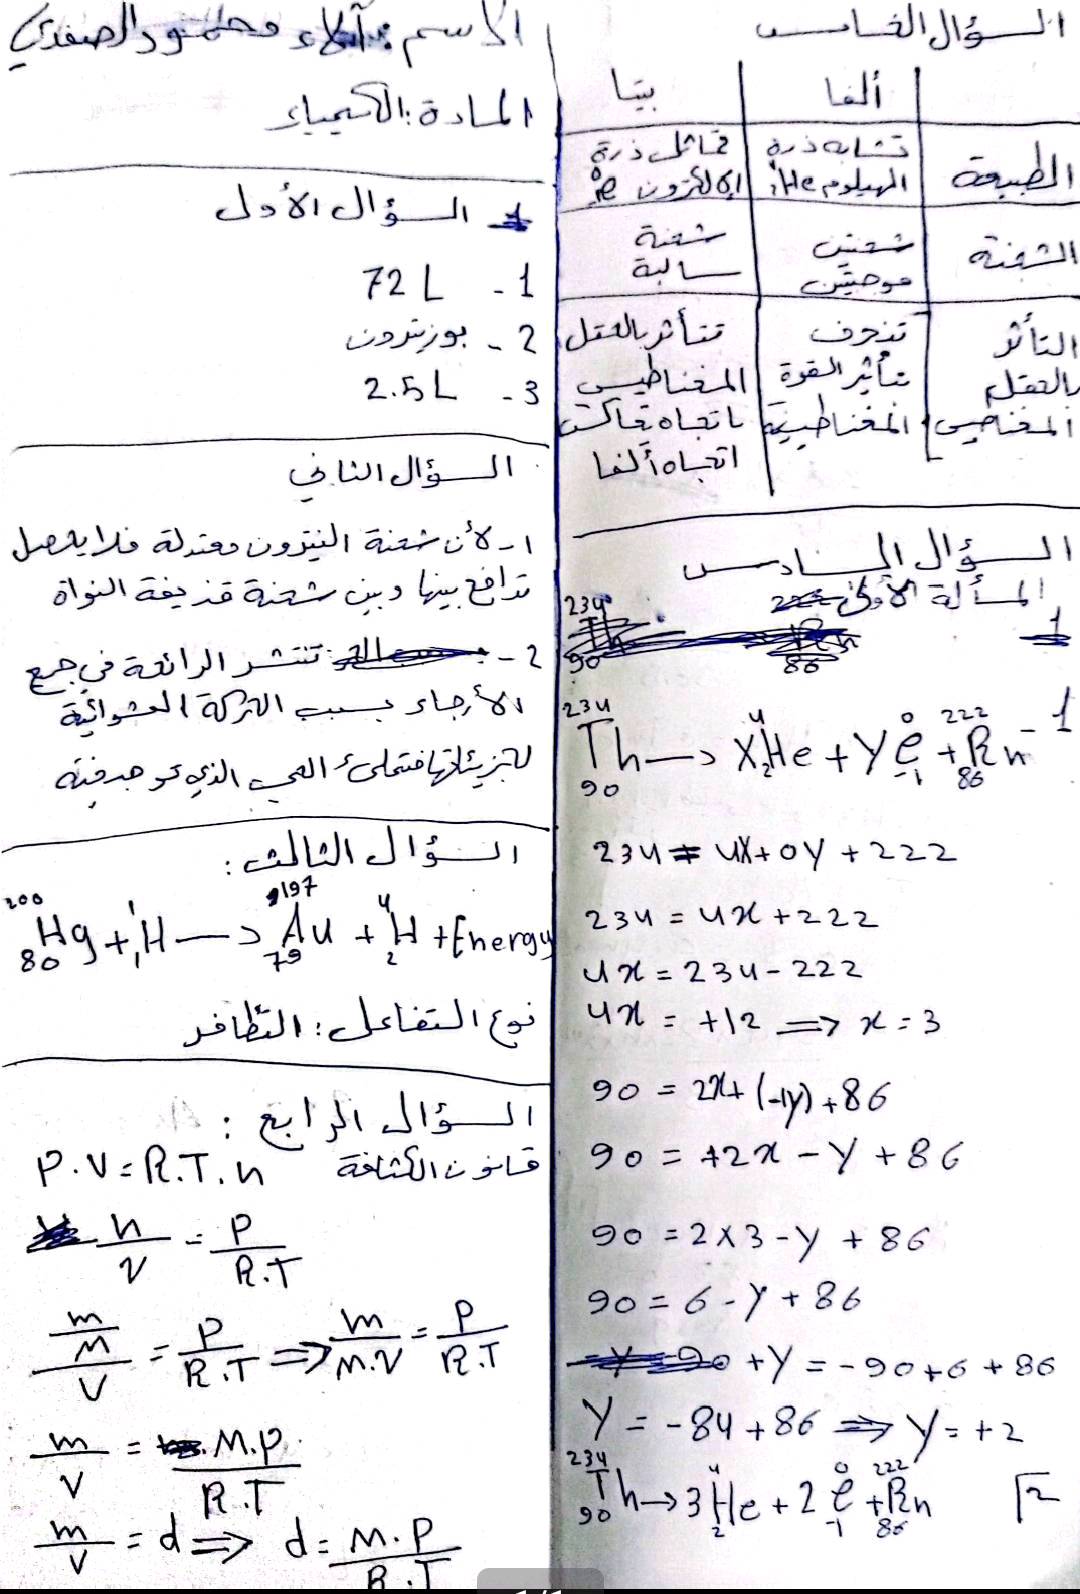 الاسم: آلاء محمود الصفدي
المادة: الكيمياء
السؤال الأول
1 - 72 L
2 - بوزيترون
3 - 2.5 L
السؤال الثاني
1- لأن شحنة النيترون معتدلة فلا يحصل
تدافع بينها وبين شحنة قذيفة النواة
2 - تنتشر الرائحة في جمع
الأرجاء بسبب الحركة العشوائية
لجزيئاتها فتملئ الذي
السؤال الثالث:
²⁰⁰₈₀Hg + ¹₁H —> ¹⁹⁷₇₉Au + ⁴₂H + Energy
نوع التفاعل: التطافر
السؤال الرابع:
قانون الكثافة P.V = R.T.n
n/V = P/R.T
(m/M)/V = P/R.T => m/M.V = P/R.T
m/V = M.P/R.T
m/V = d => d = M.P/R.T
السؤال الخامس
ألفا بيتا
الطبيعة تشابه ذرة الهيلوم ⁴₂He تماثل ذرة الإلكترون ⁰₋₁e
الشحنة شحنتين موجبتين شحنة سالبة
التأثر بالحقل المغناطيسي تنحرف بتأثير القوة المغناطيسية تتأثر بالحقل المغناطيسي باتجاه تعاكس اتجاه ألفا
السؤال السادس
المسألة الأولى
1- ²³⁴₉₀Th —> X⁴₂He + Y⁰₋₁e + ²²²₈₆Rn
234 = 4X + 0Y + 222
234 = 4x + 222
4x = 234 - 222
4x = +12 => x = 3
90 = 2x + (-1y) + 86
90 = +2x - Y + 86
90 = 2 x 3 - Y + 86
90 = 6 - Y + 86
+Y = -90 + 6 + 86
Y = -84 + 86 => Y = +2
2 ²³⁴₉₀Th —> 3⁴₂He + 2⁰₋₁e + ²²²₈₆Rn